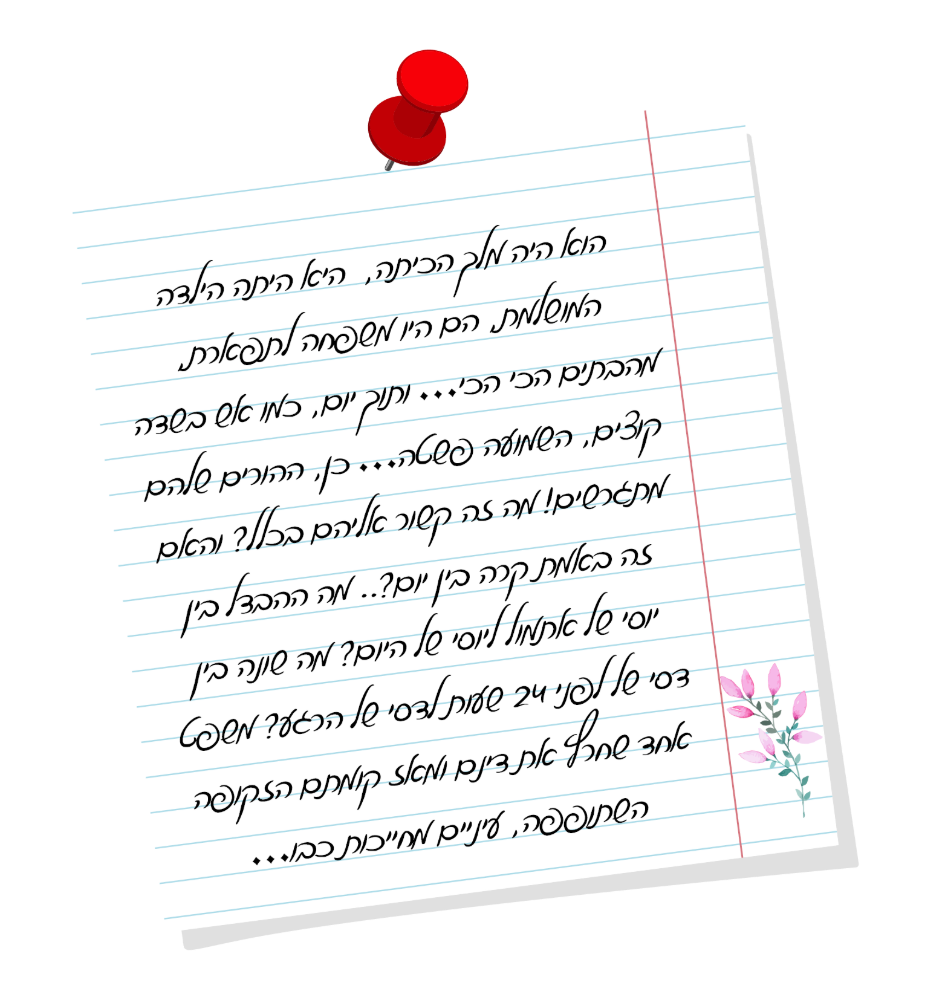 הוא היה מלך הכיתה, היא היתה הילדה
המושלמת, הם היו משפחה לתפארת,
מהבתים הכי הכי... ותוך יום, כמו אש בשדה
קוצים, השמועה פשטה... כן, ההורים שלהם
מתגרשים! מה זה קשור אליהם בכלל? והאם
זה באמת קרה בין יום?.. מה ההבדל בין
יוסי של אתמול ליוסי של היום? מה שונה בין
דסי של לפני 24 שעות לדסי של הרגע? משפט
אחד שחרץ את דינם ומאז קומתם הזקופה
השתופפה, עיניים מחייכות כבו...